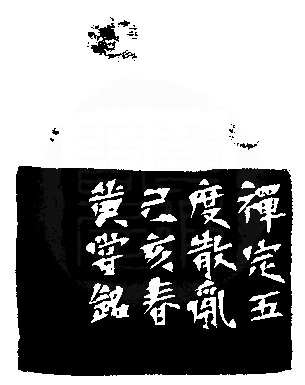 禪定五
度散亂
己亥春
黃嘗銘